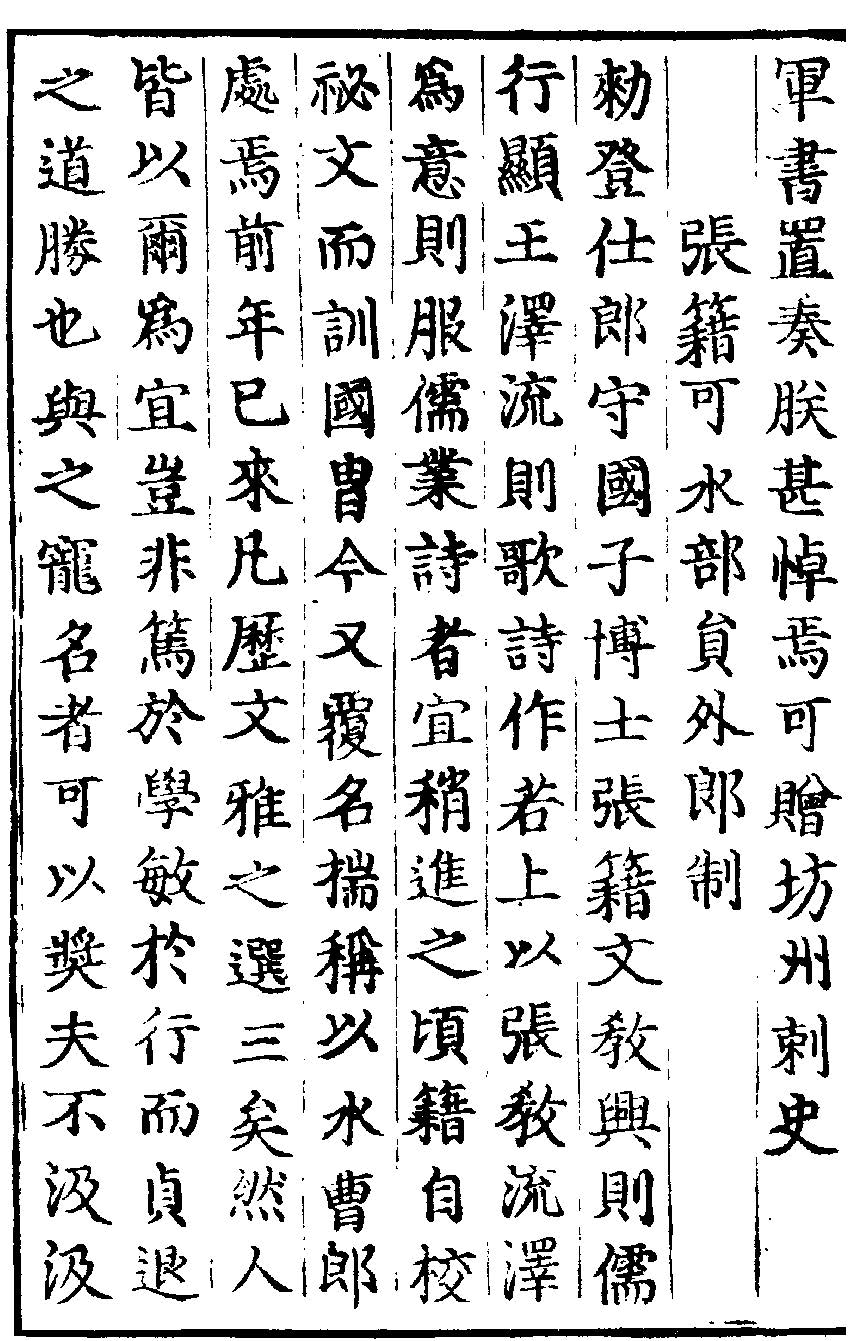 軍書置奏朕甚悼焉可贈坊州刺史
張籍可水部員外郎制
勑登仕郎守國子博士張籍文教興則儒
行顯王澤流則歌詩作若上以張教流澤
爲意則服儒業詩者宜稍進之頃籍自校
祕文而訓國胄今又覆名揣稱以水曹郎
處焉前年已來凡歷文雅之選三矣然人
皆以爾爲宜豈非篤於學敏於行而貞退
之道勝也與之寵名者可以奬夫不汲汲